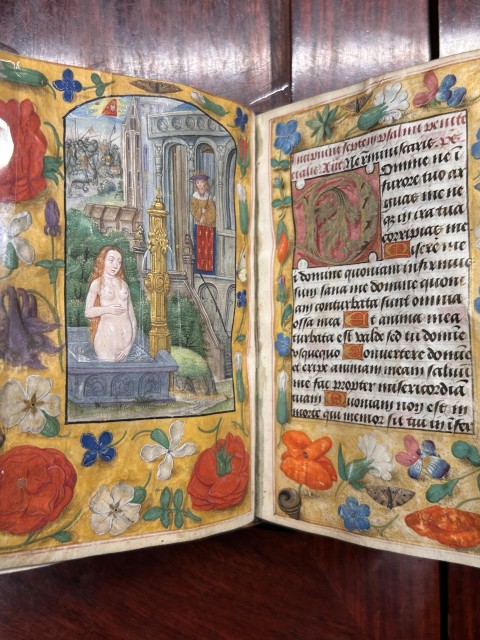 Incipiunt septem psalmi penite
tialis. Ant. Ne reminiscaris. Ps.
Domine ne i
furore tuo ar
guas me ne
q3 in ira tua
corripias me
Misere me
i domine quoniam infirmus
sum sana me domine quoni
am conturbata sunt omnia
ossa mea Et anima mea
turbata est valde sed tu domi
usquequo Convertere domie
et eripe animam meam saluu
me fac propter misericordiā
tuam Quoniam non est in
morte qui memor sit tui in ifer